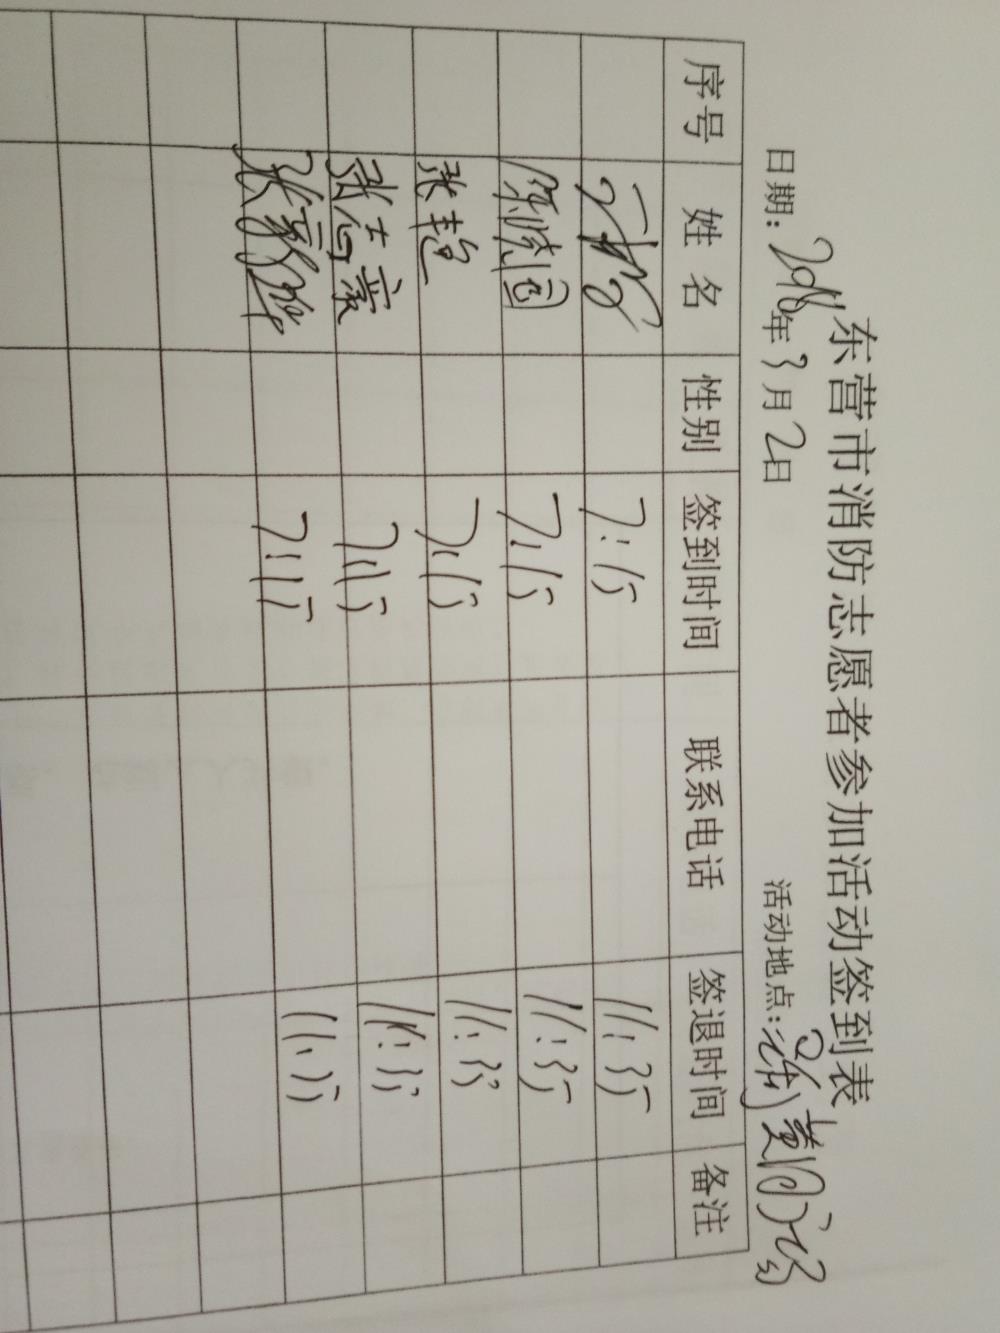 东营市消防志愿者参加活动签到表
日期: 2016年3月2日 活动地点:
序号 姓名 性别 签到时间 联系电话 签退时间 备注
7:15 11:35
陈晓国 7:15 11:35
张艳 7:15 11:35
张高豪 7:15 11:35
7:15 11:35